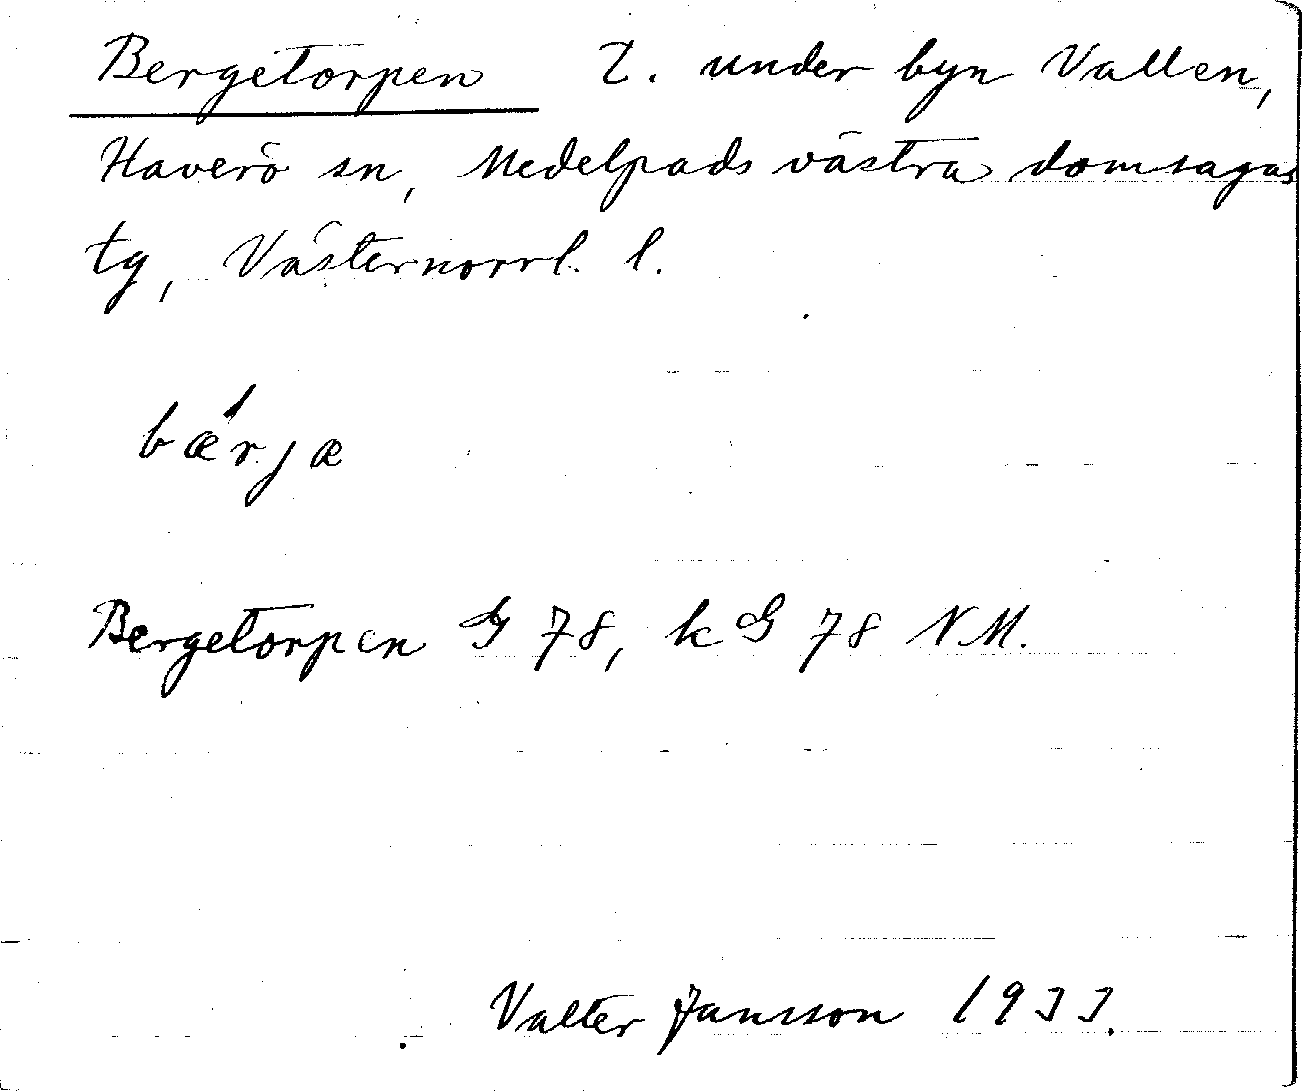 Bergetorpen l. under byn Vallen,
Haverö sn, Medelpads västra domsagas
tg, Västernorrl. l.
bǽrjæ
Bergetorpen G 78, k G 78 NM.
Valter Jansson 1933.